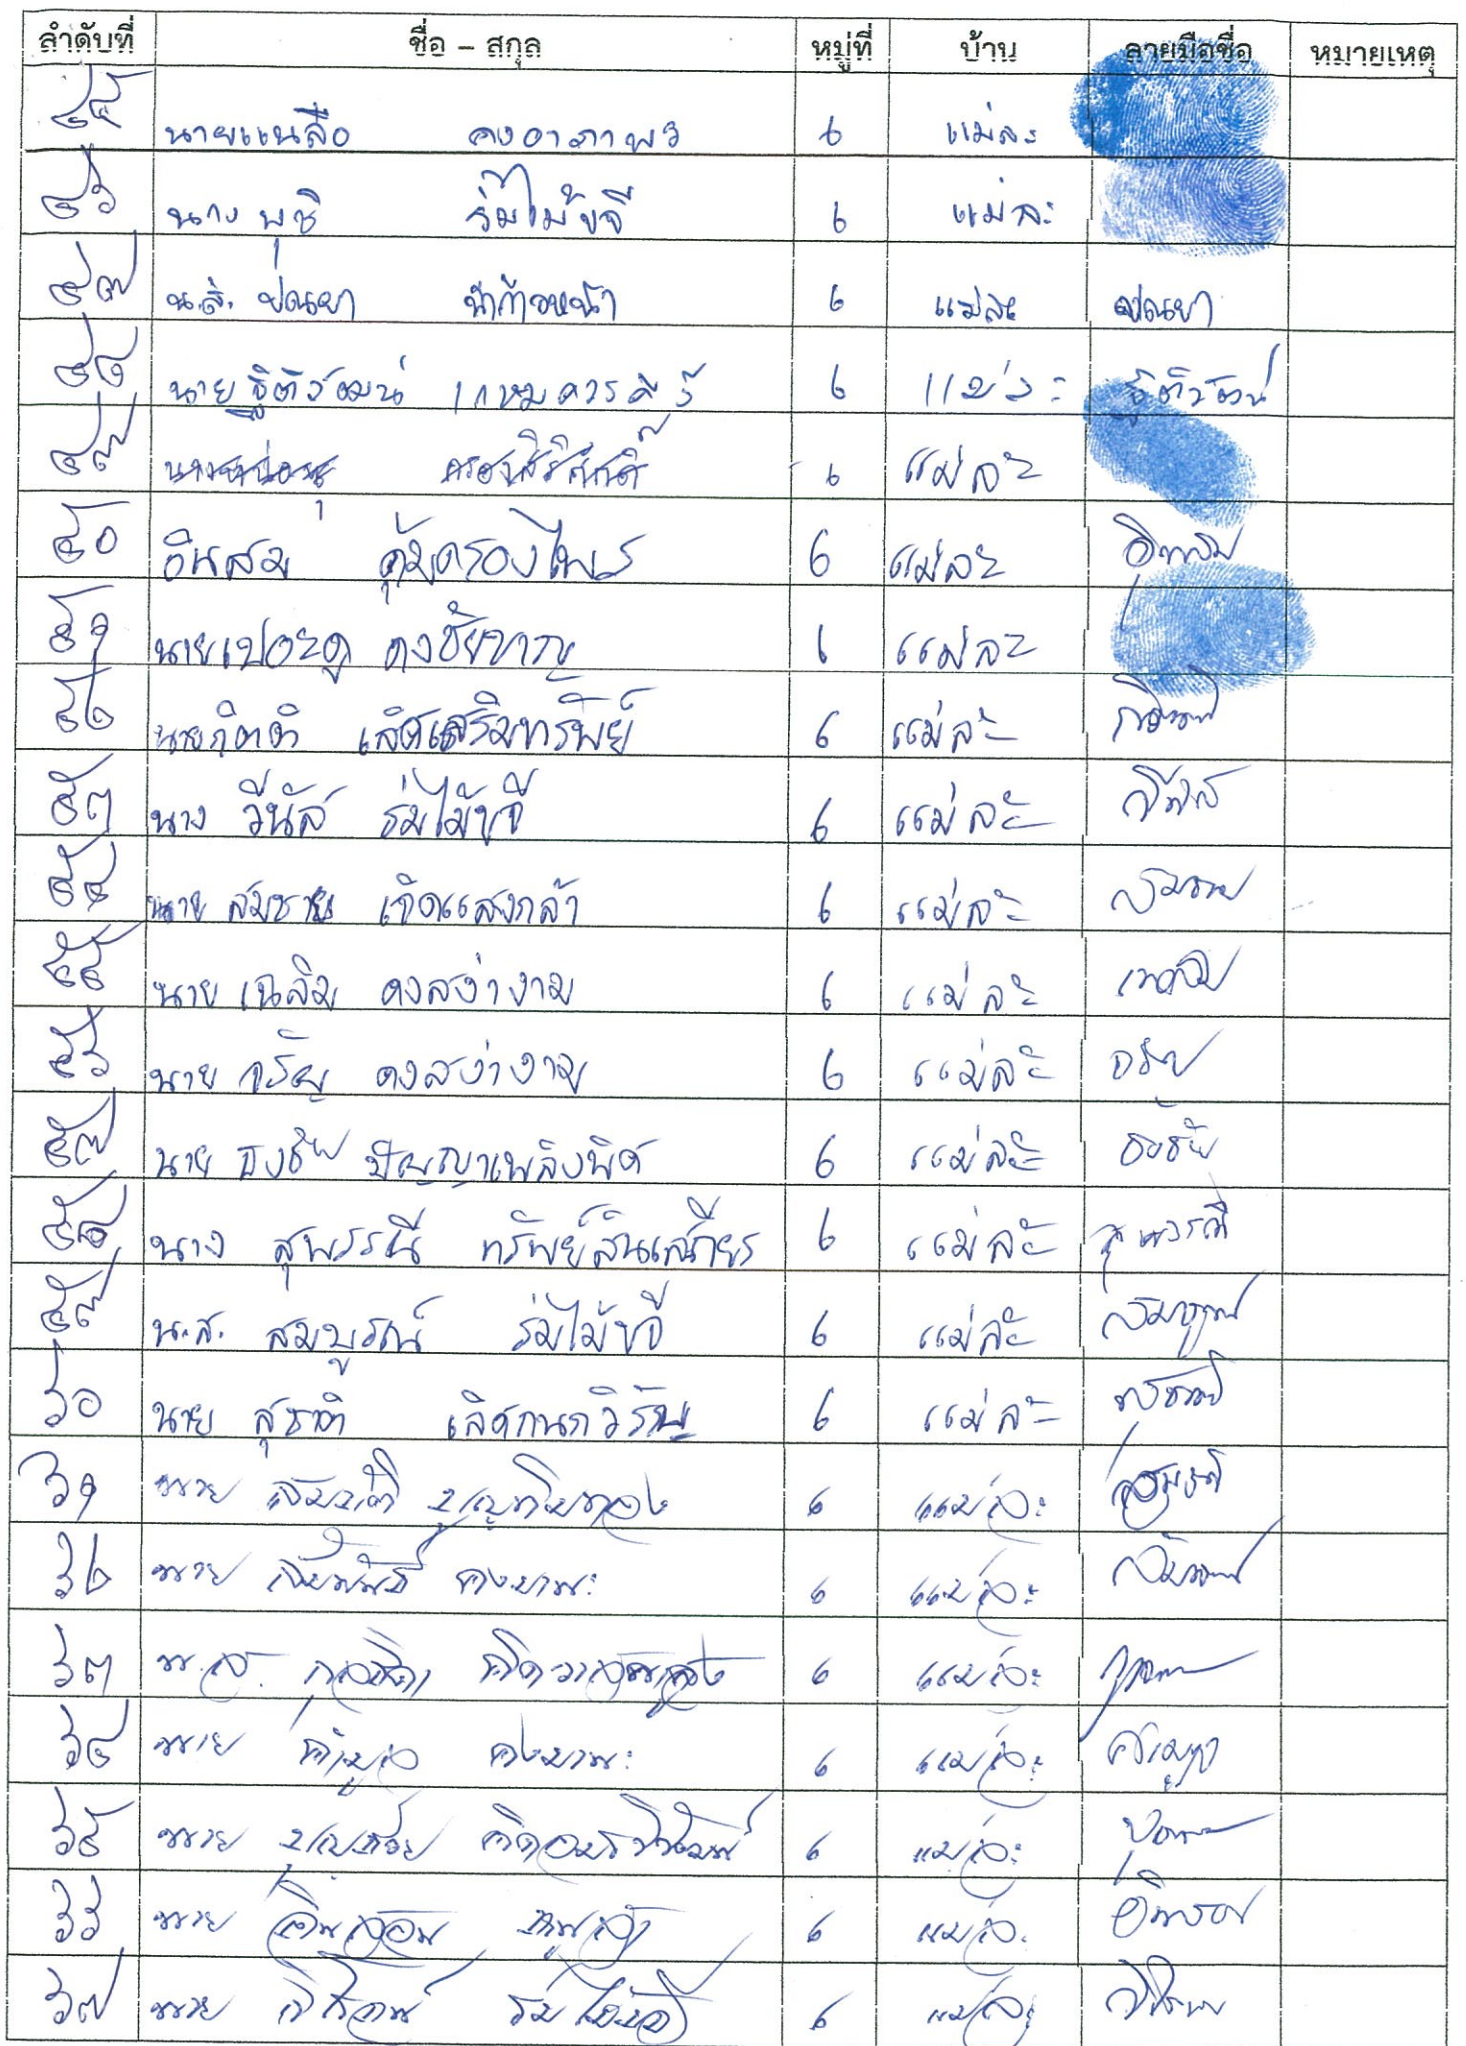 ลำดับที่ ชื่อ – สกุล หมู่ที่ บ้าน ลายมือชื่อ หมายเหตุ
๔๕ นายแนลือ คงอาภาพร 6 แม่ละ
๔๖ นาง พุชิ ร่มไม้ขจี 6 แม่ละ
๔๗ น.ส. ปณยา นำก้าวหน้า 6 แม่ละ ปณยา
๔๘ นาย ฐิติวัฒน์ แหมควรคีรี 6 แม่ละ ฐิติวัฒน์
๔๙ ครองสิริศักดิ์ 6 แม่ละ
๕๐ อินสม คุ้มครองไพร 6 แม่ละ อินสม
๕๑ นายเปอะดู คงชัยขาญ 6 แม่ละ
๕๒ นายกิตติ เลิศเสริมทรัพย์ 6 แม่ละ
๕๓ นาง วีนัส ร่มไม้ขจี 6 แม่ละ วีนัส
๕๔ นาย สมชาย เกิดแสงกล้า 6 แม่ละ สมชาย
๕๕ นาย เฉลิม คงสง่างาม 6 แม่ละ เฉลิม
๕๖ นาย จรัญ คงสง่างาม 6 แม่ละ จรัญ
๕๗ นาย ธงชัย ปัญญาเพลิงพิศ 6 แม่ละ ธงชัย
๕๘ นาง สุพรรณี ทรัพย์สินเสถียร 6 แม่ละ สุพรรณี
๕๙ น.ส. สมบูรณ์ ร่มไม้ขจี 6 แม่ละ สมบูรณ์
๖๐ นาย สุชาติ เลิศกนกวิรัญ 6 แม่ละ สุชาติ
๖๑ นาย สมบัติ บุญทิมทอง 6 แม่ละ สมบัติ
๖๒ นาย สัมพันธ์ คงมานะ 6 แม่ละ
๖๓ น.ส. 6 แม่ละ
๖๔ นาย คำมูล คงมานะ 6 แม่ละ
๖๕ นาย 6 แม่ละ
๖๖ นาย อินสอน 6 แม่ละ
๖๗ นาย ร่มไม้ขจี 6 แม่ละ